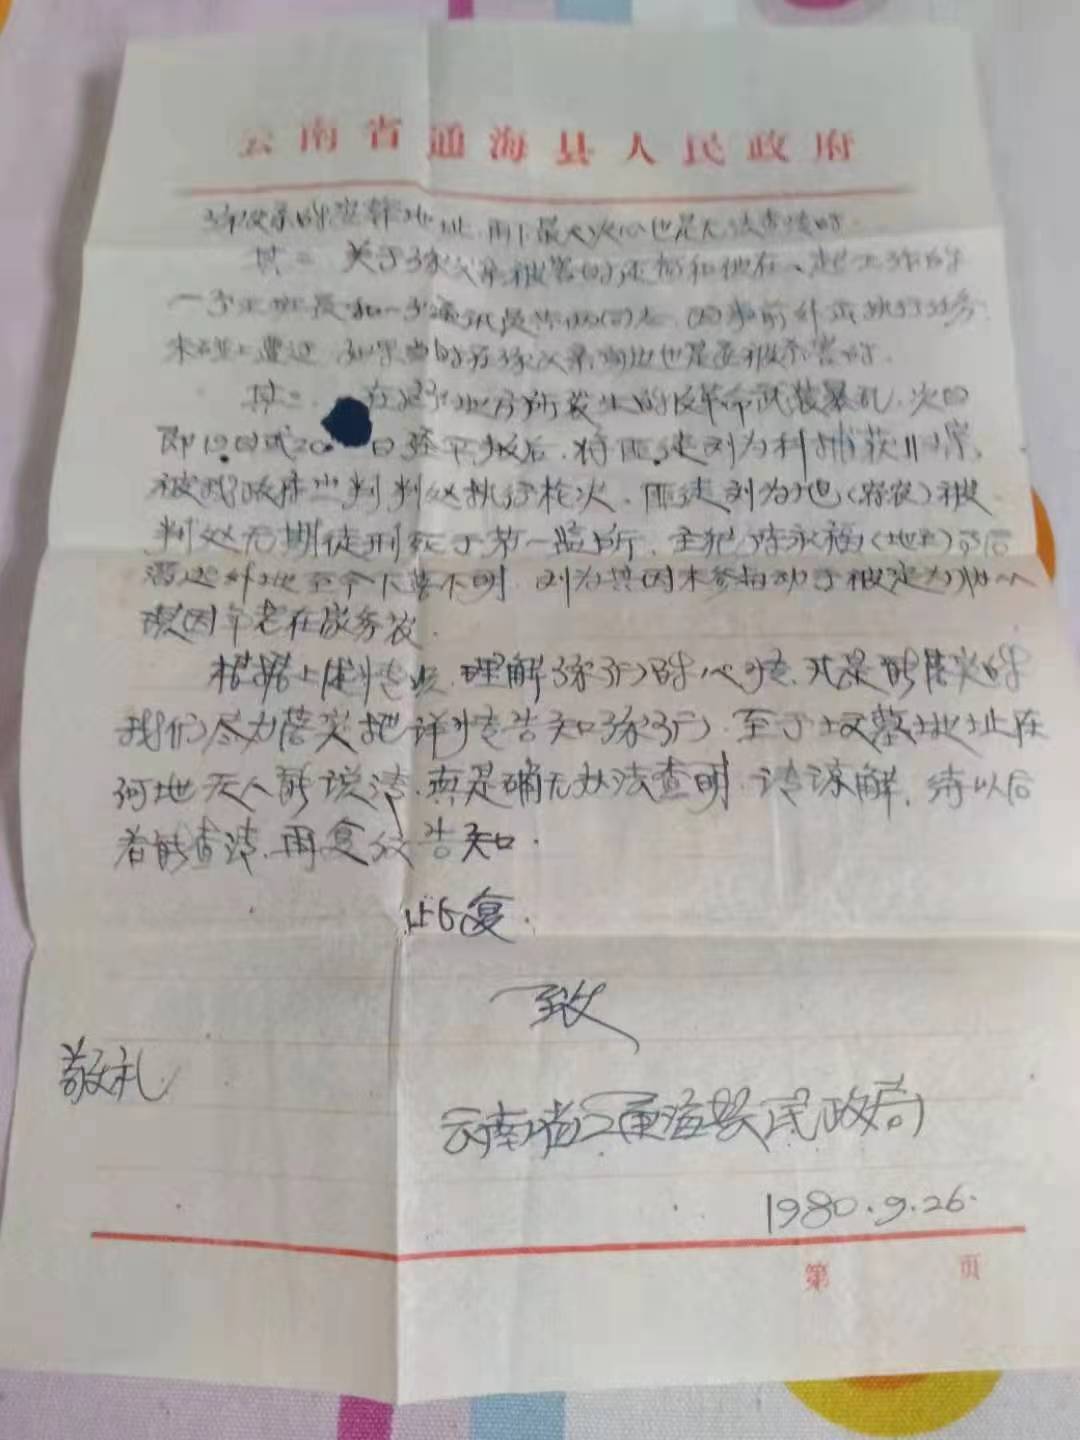 云南省通海县人民政府
你父亲的安葬地址,用了最大决心也是无法查清的.
其二 关于你父亲被害时还有和他在一起工作的
一个 员和一个通讯员 ,因事前外出执行任务
未碰上遭遇,如果当时在你父亲周边也是要被杀害的.
其三. 在这个地方所发生的反革命武装暴乱.次日
即19日或20日 平叛后.将匪徒刘为科捕获归案,
被我政府 判处执行枪决.匪徒刘为地(富农)被
判处无期徒刑死于第一监狱所.主犯陈永福(地主)
逃外地至今下落不明.刘为 因未参 动手被定为
现因年老在家务农.
根据上述情况.理解你们的心情.凡是能落实的
我们尽力落实把详情告知你们.至于坟墓地址在
何地无人能说清.真是确无办法查明.请谅解,待以后
若能查清.再复信告知.
此复.
致
敬礼
云南省通海县民政局
1980.9.26.
第 页